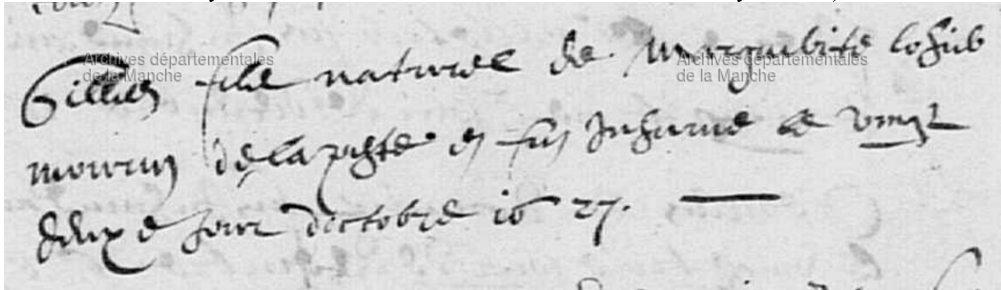 Archives départementales
de la Manche
Archives départementales
de la Manche
Gilles filz naturel de Marguerite
mourut de la peste et fut Inhumé le vingt
deuxe jour d'octobre 1627.